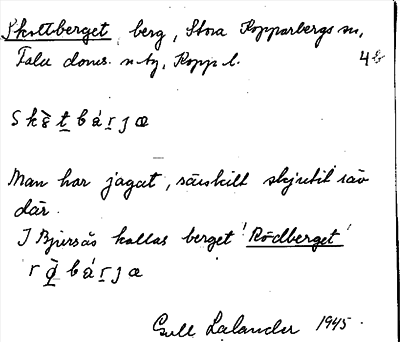 Skottberget, berg, Stora Kopparbergs sn,
Falu doms. n tg, Kopp l.
4b
skὲt̲bár̲jæ
Man har jagat, särskilt skjutit räv
där.
I Bjursås kallas berget 'Rödberget'
r bár̲jæ
Gull Lalander 1945.